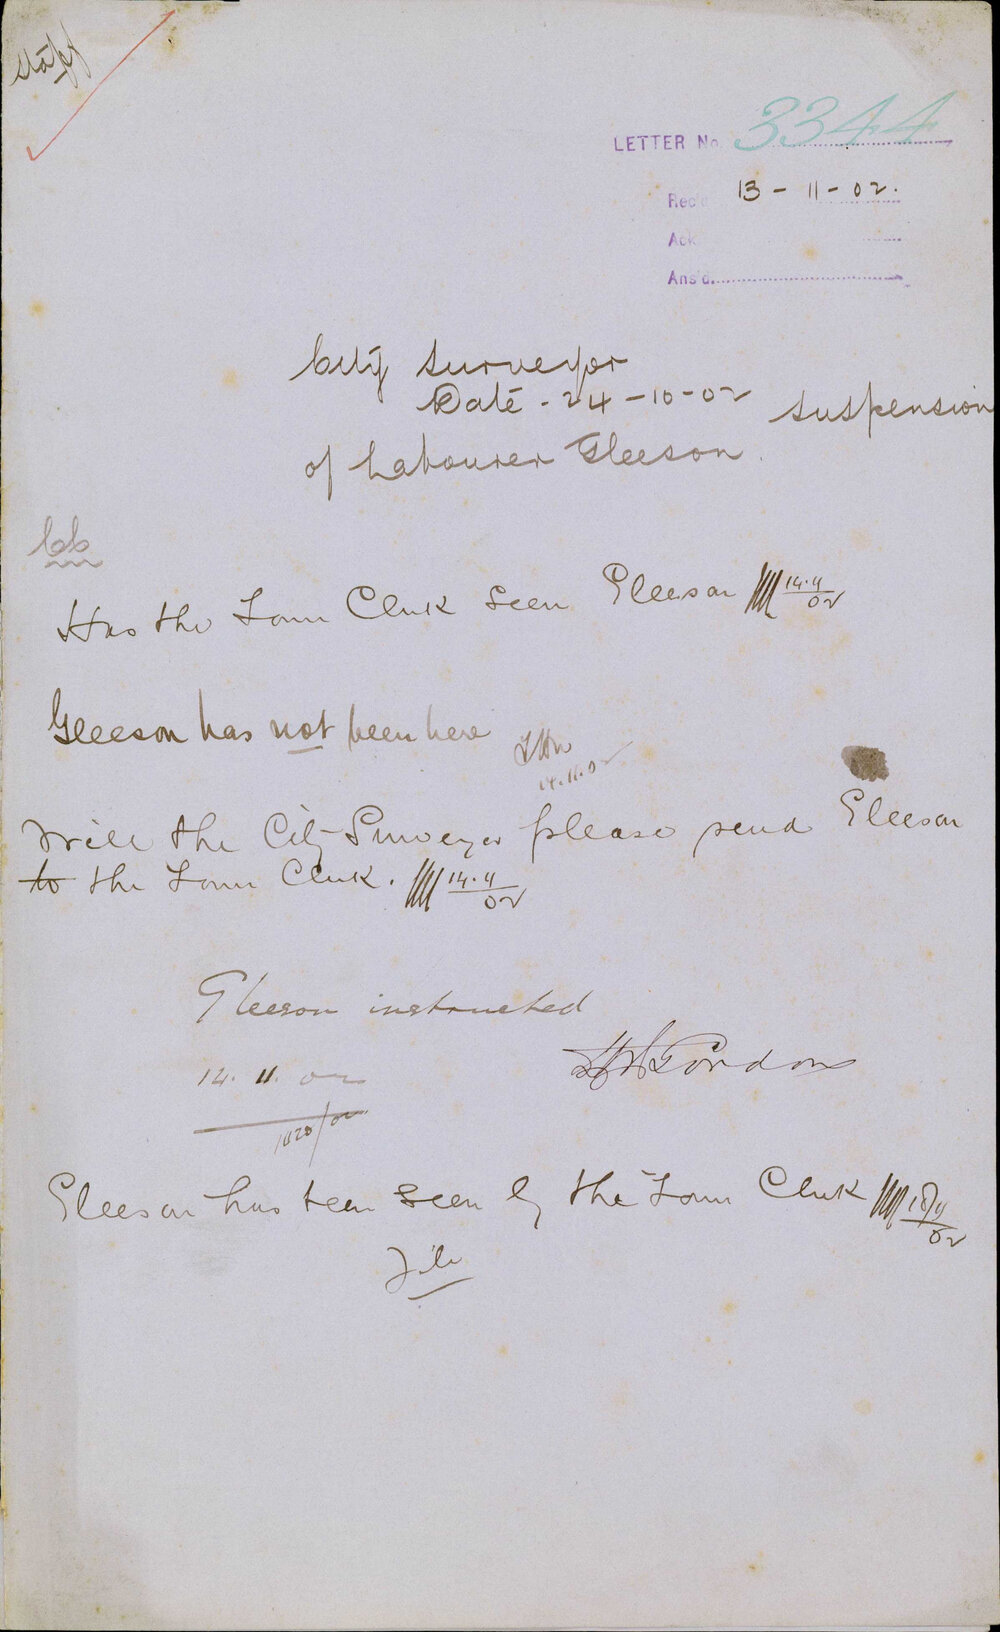 Staff
LETTER No. 3344
Rec'd 13-11-02.
Ack
Ans'd.
City Surveyor
Date - 24-10-02 suspension
of Labourer Gleeson.
Has the Town Clerk seen Gleeson 14.11/02
Gleeson has not been here
14.11.02
Will the City Surveyor please send Gleeson
to the Town Clerk. 14.11/02
Gleeson instructed
Gordon
14. 11. 02
1120/02
Gleeson has been seen by the Town Clerk 18/11/02
File